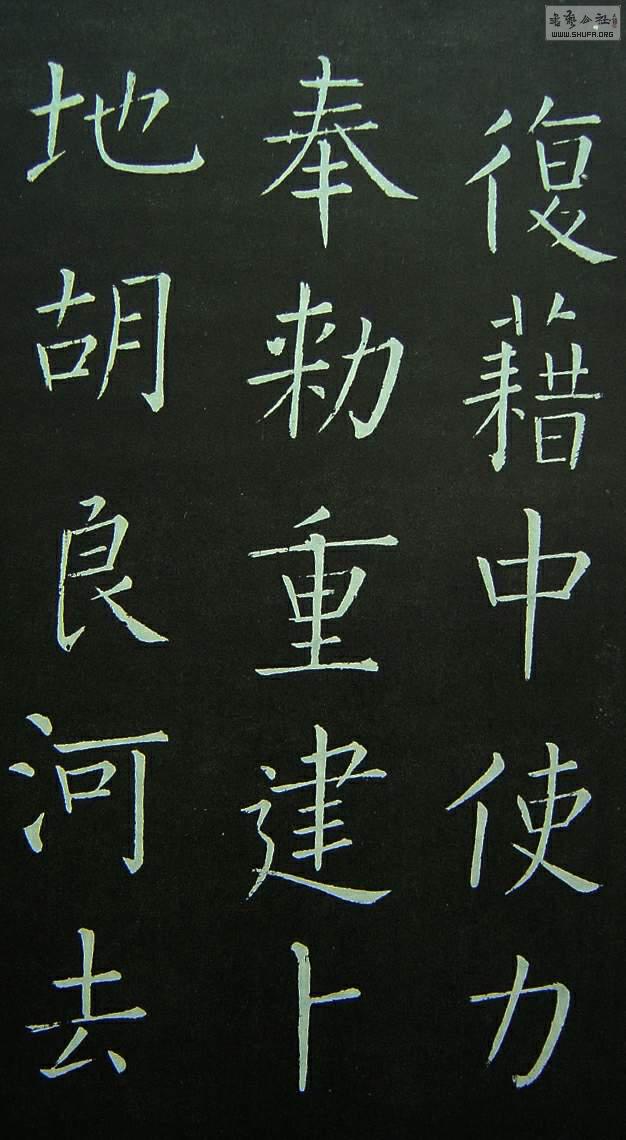 復藉中使力
奉勑重建卜
地胡良河去
書藝公社
WWW.SHUFA.ORG